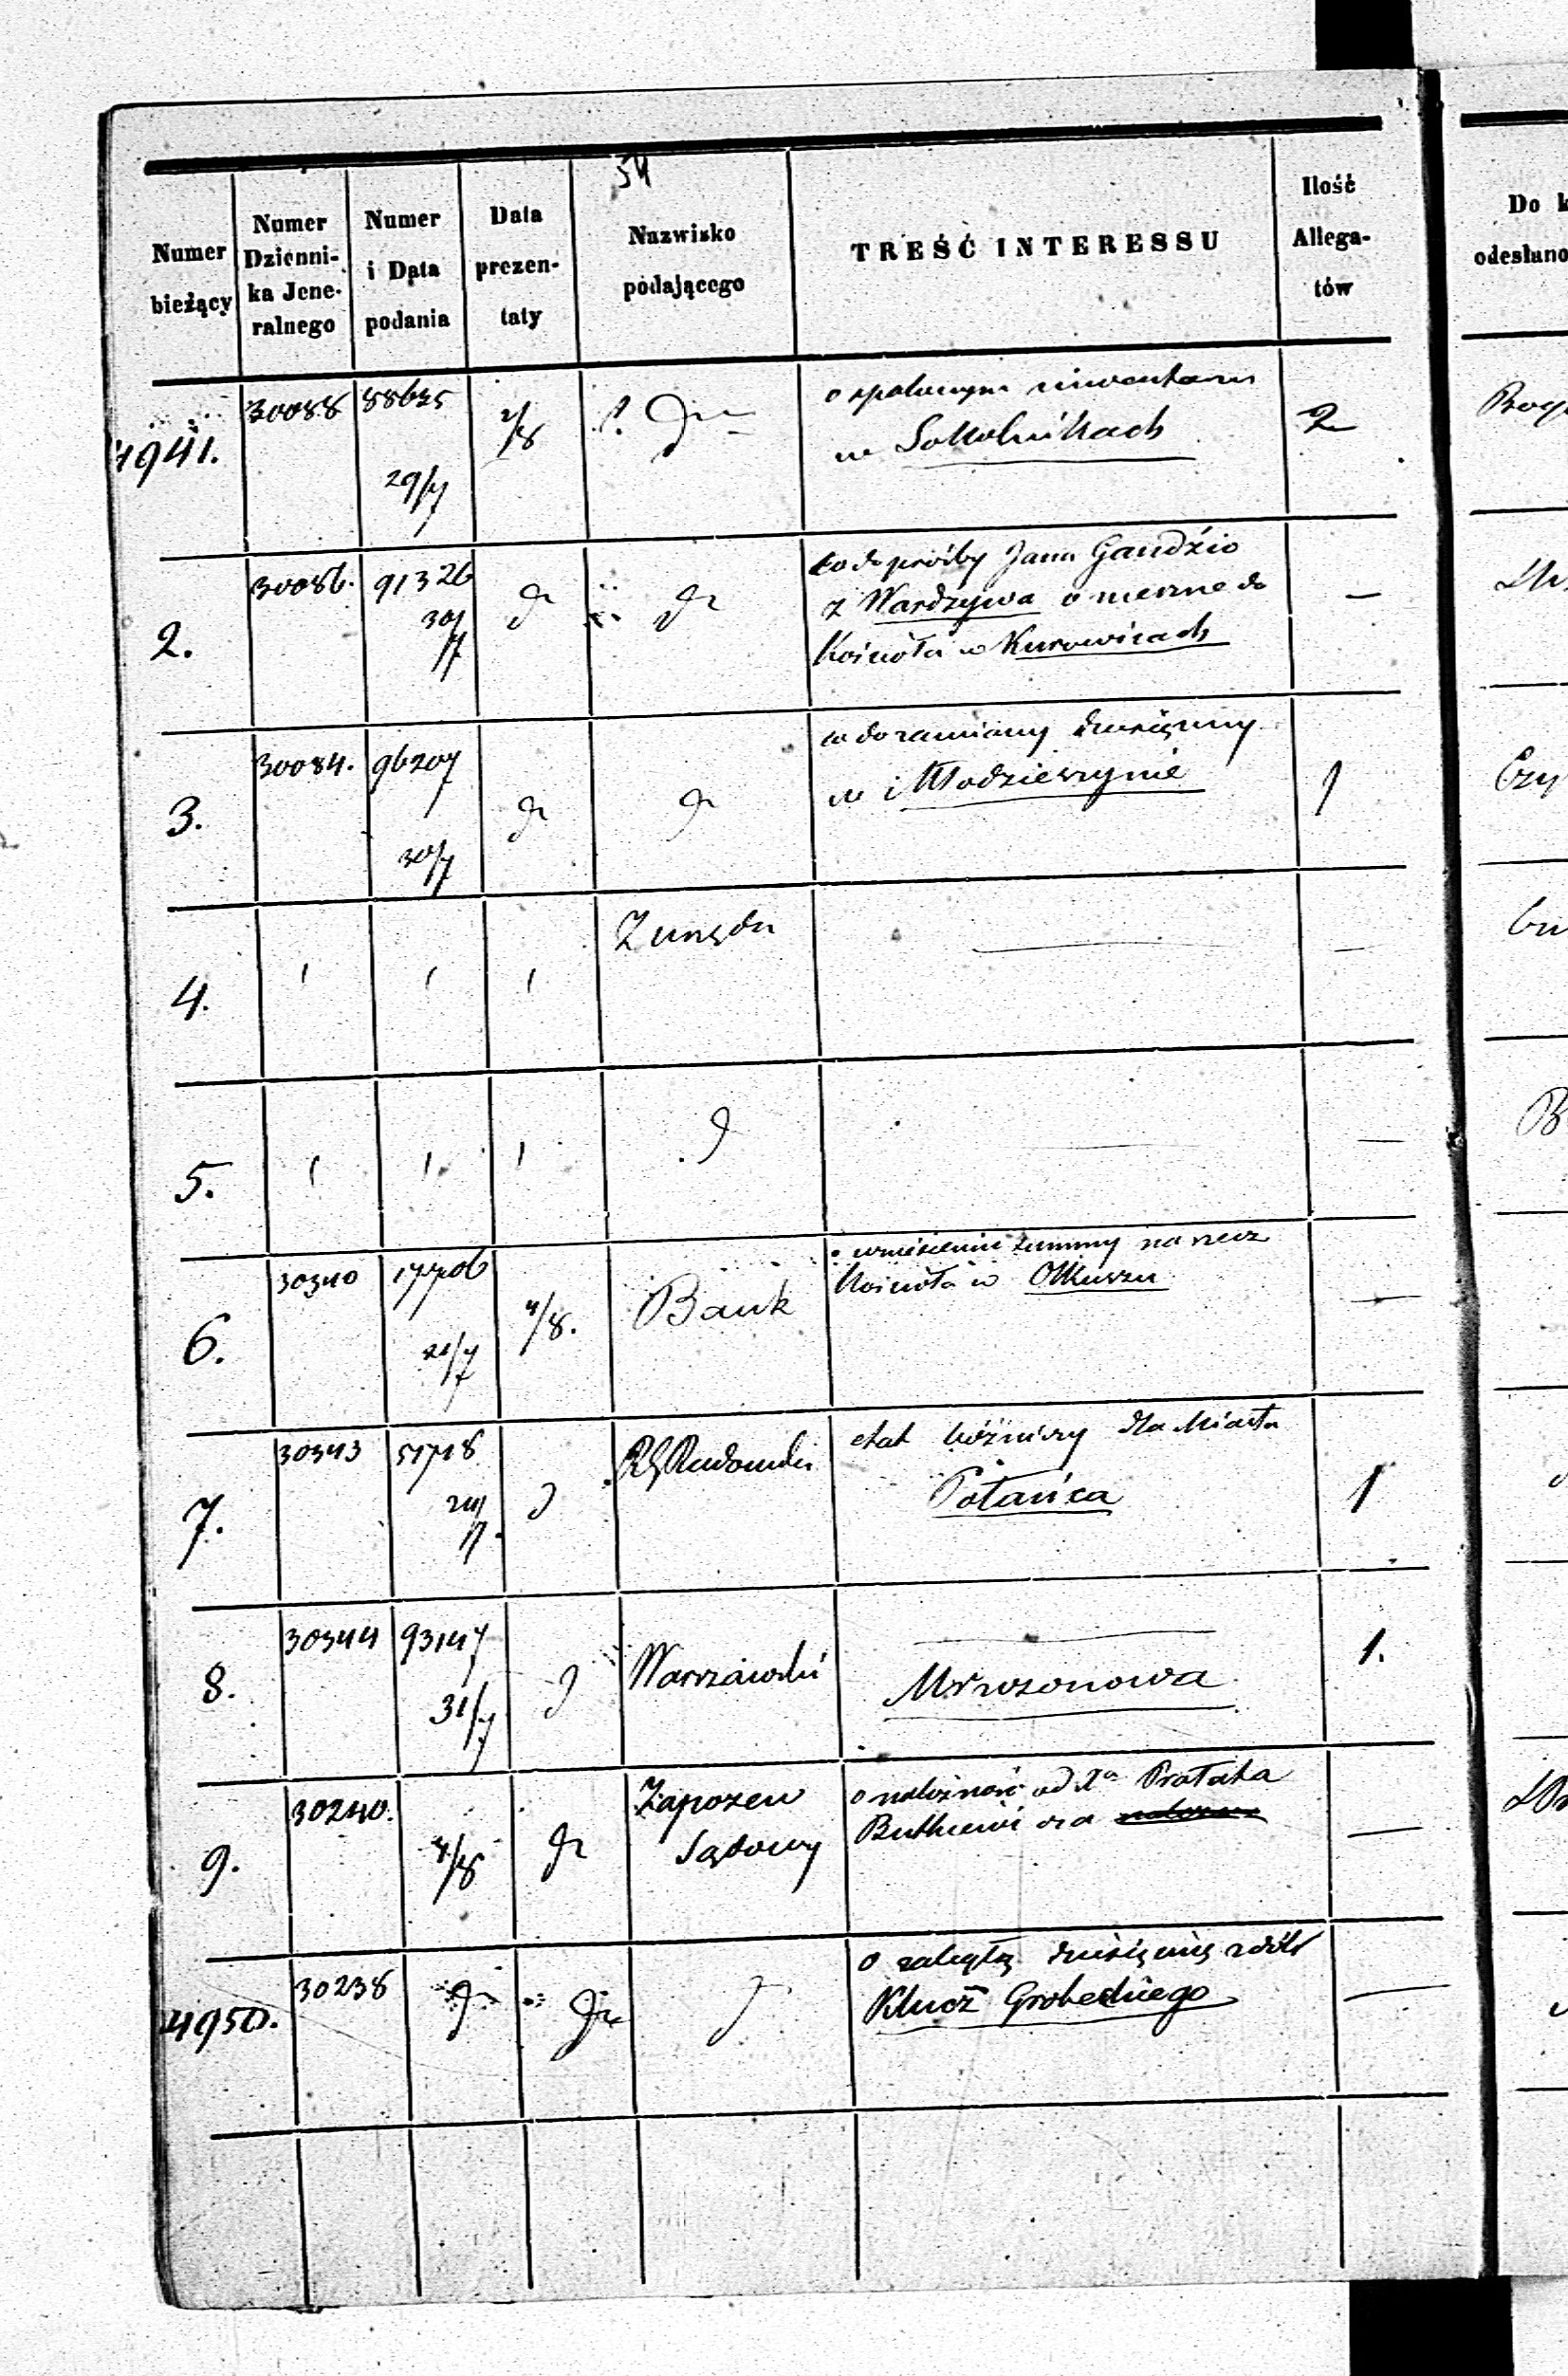 54
Numer bieżący
Numer Dzienni- ka Jene- ralnego
Numer i Data podania
Data prezen- taty
Nazwisko podającego
TREŚĆ INTERESSU
Ilość Allega- tów
Do k
odesłano
4941. 30088 88635 29/7 2/8 o spalonym inwentarzu
w Sokolnikach 2
2. 30086. 91326 30/7 dto dto co do prośby Jana Gaudzio
z Wardzynia o meszne do
Kościoła w Kurowicach —
3. 30084. 96207 30/7 dto dto co do zamiany dziesięciny
w Młodzieszynie 1
4. Z urzędu —
5. d —
6. 30340 17706 21/7 4/8. Bank o wniesieniu summy na rzecz
Kościoła w Olkuszu —
7. 30343 51718 24/7 d RG Radomski etat bóżniczy dla Miasta
Połańca 1
8. 30344 93147 31/7 d Warszawski —
Mrwzonowa 1.
9. 30240. 4/8 dto Zapozew
Sądowy o należność od Xa Prałata
Butkiewi cza —
4950. 30238 dto dto d o zaległą dziesięcinę z dóbr
Klucz Grobeckiego —